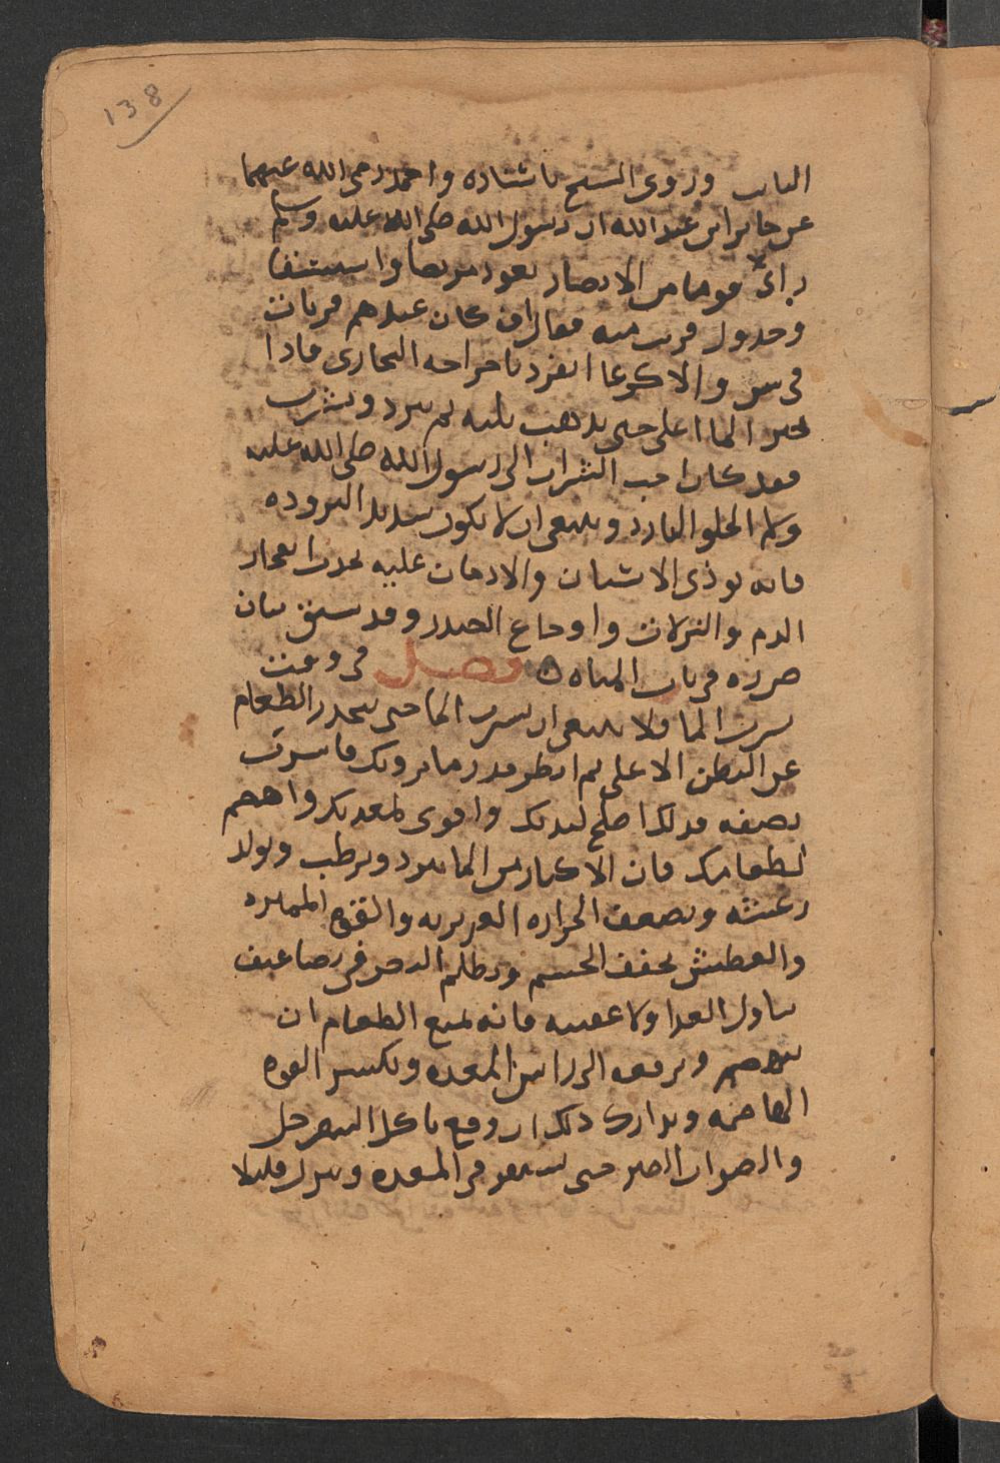 138
الباب وروى الشيخ باسناده واحمد رضى الله عنهما
عن جابر ابن عبد الله ان رسول الله صلى الله عليه وسلم
راى قوما من الانصار يعود مريضا واستسقا
وجدول قريب منه فقال ان كان عندكم ماء بات
فى شن والا كرعنا انفرد باخراجه البخارى فاذا
الماء اغلى حتى يذهب ثلثه ثم يبرد ويشرب
فقد كان احب الشراب الى رسول الله صلى الله عليه
وسلم الحلو البارد وينبغى ان لا يكون شديد البروده
فانه يوذى الاسنان والادمان عليه يحدث انفجار
الدم والنزلات واوجاع الصدر وقد سبق بيان
ضرره فى باب المياه ه فصل فى وقت
شرب الما ولا ينبغى ان يشرب الما حتى ينحدر الطعام
عن البطن الاعلى ثم انظر قدر ما يرويك فاشرب
نصفه فذلك اصلح لبدنك واقوى لمعدتك واهضم
لطعامك فان الاكثار من الما يبرد ويرطب ويولد
رعشه ويضعف الحراره الغريزيه والقوى المميزه
والعطش يجفف الجسم ويظلم البصر
تناول الغدا ولا عقيبه فانه يمنع الطعام ان
ينهضم ويرفعه الى راس المعده ويكسر القوه
الهاضمه وتدارك ذلك ان وقع باكل السفرجل
والصواب الصبر حتى يستقر فى المعده وينزل قليلا